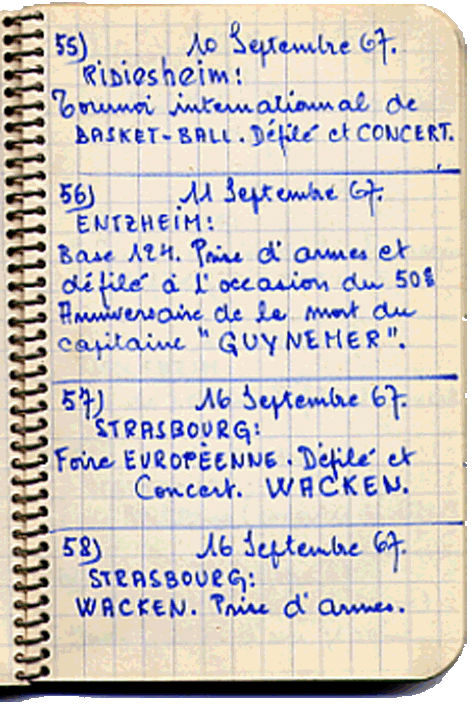 55) 10 Septembre 67.
Ridiesheim:
Tournoi international de
BASKET-BALL. Défilé et CONCERT.
56) 11 Septembre 67.
ENTZHEIM:
Base 124. Prise d'armes et
défilé à l'occasion du 50è
Anniversaire de la mort du
capitaine "GUYNEMER".
57) 16 Septembre 67.
STRASBOURG:
Foire EUROPÈENNE. Défilé et
Concert. WACKEN.
58) 16 Septembre 67.
STRASBOURG:
WACKEN. Prise d'armes.